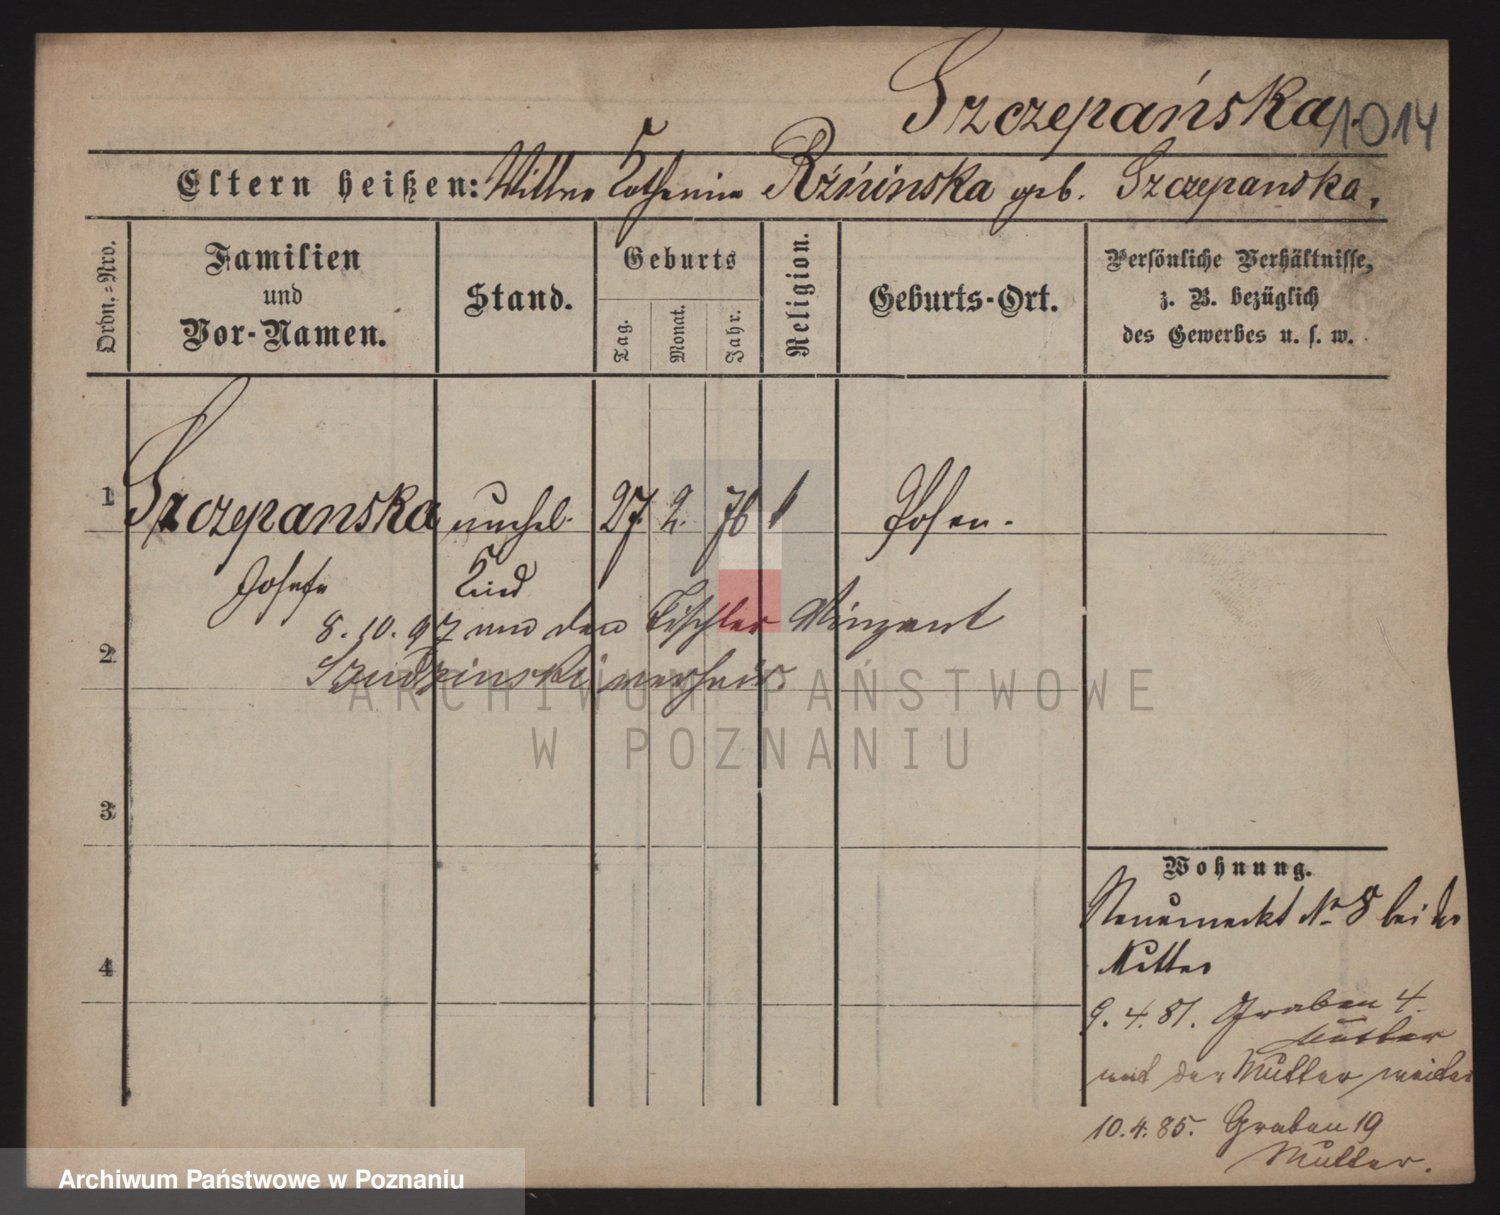 Szczepańska
1014
Eltern heißen: Mutter Catharina geb. Szczepanska.
Ordn.-Nro.
Familien
und
Vor-Namen.
Stand.
Geburts
Tag.
Monat.
Jahr.
Religion.
Geburts-Ort.
Persönliche Verhältnisse,
z. B. bezüglich
des Gewerbes u. s. w.
1 Szczepanska unehel. 27. 2. 76 Posen.
Josefa Kind
8. 10. 97 den Tischler Vinzent
2
Szudzinski verheir.
ARCHIWUM PAŃSTWOWE
W POZNANIU
3
4
Wohnung.
Neuemarkt No 8 bei der
Mutter
9. 4. 81. Graben 4.
Mutter
mit der Mutter weiter
10. 4. 85. Graben 19
Mutter.
Archiwum Państwowe w Poznaniu